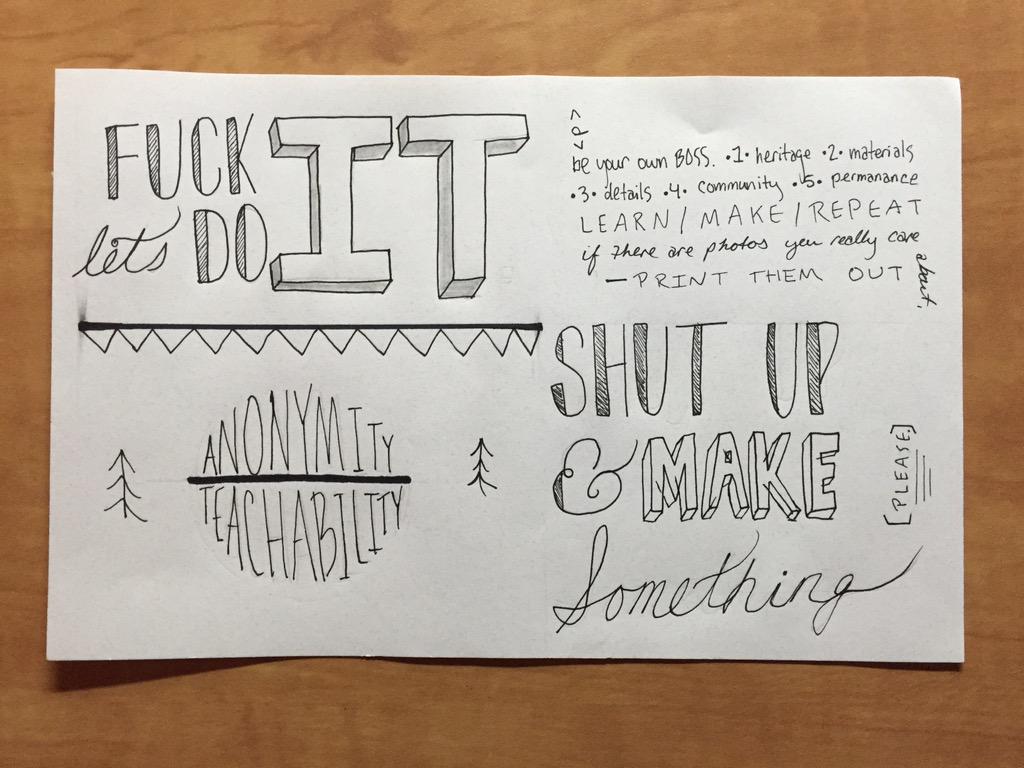 FUCK IT
let's DO
ANONYMITY
TEACHABILITY
<P>
be your own BOSS. •1• heritage •2• materials
•3• details •4• community •5• permanance
LEARN / MAKE / REPEAT
if there are photos you really care about,
— PRINT THEM OUT
SHUT UP
& MAKE
[PLEASE]
Something